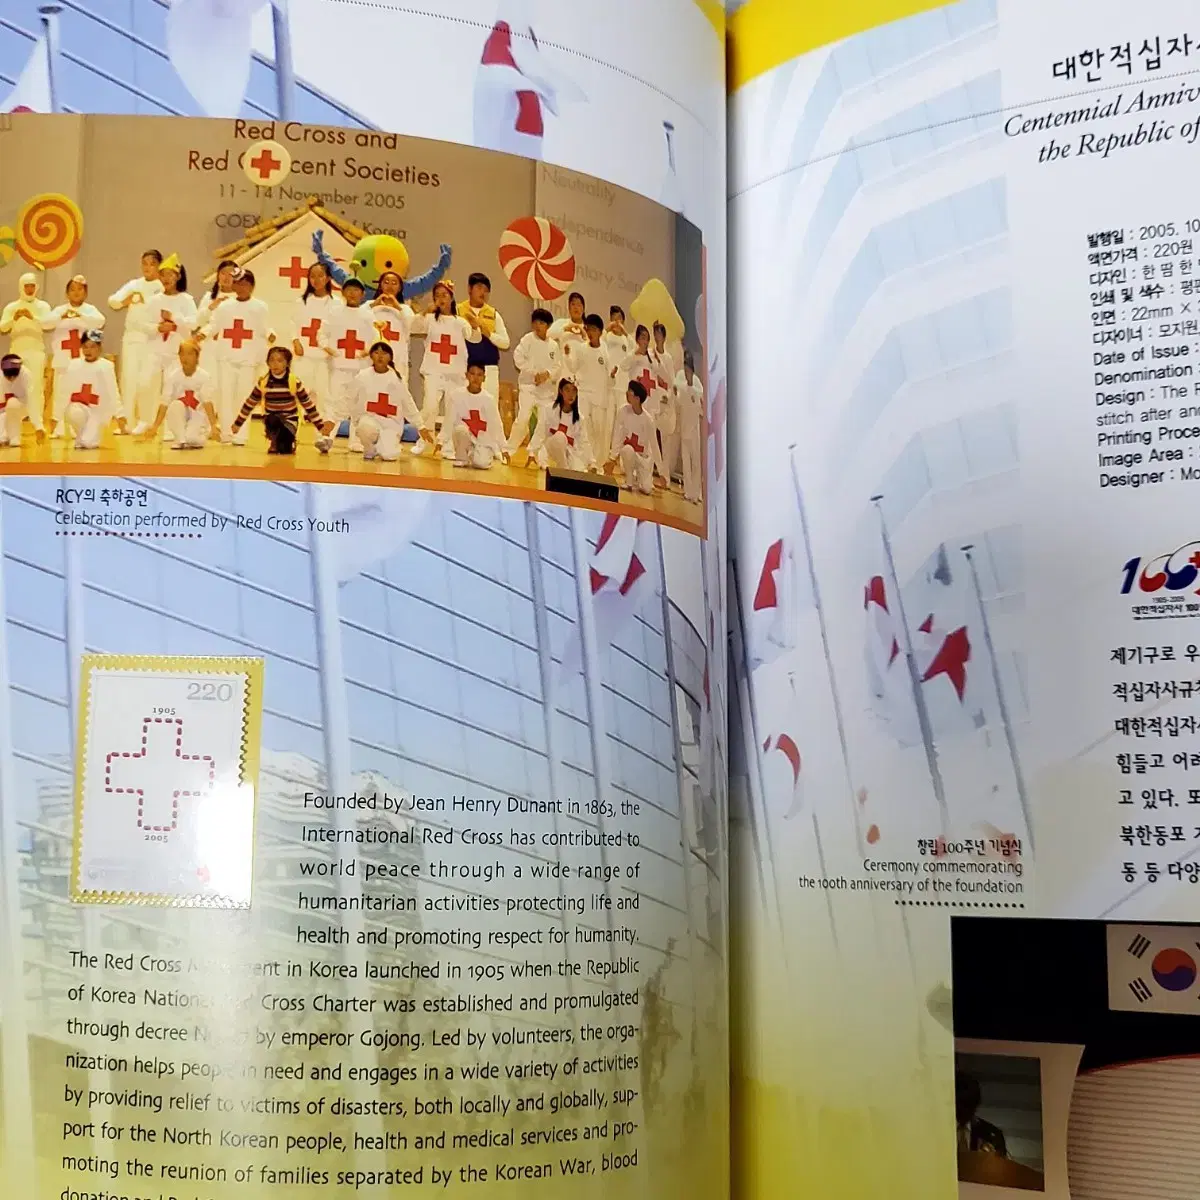 Red Cross and
Red cent Societies
11 - 14 November 2005
COEX Korea
Neutrality
RCY의 축하공연
Celebration performed by Red Cross Youth
220
1905
2005
Founded by Jean Henry Dunant in 1863, the
International Red Cross has contributed to
world peace through a wide range of
humanitarian activities protecting life and
health and promoting respect for humanity.
The Red Cross in Korea launched in 1905 when the Republic
of Korea Cross Charter was established and promulgated
through decree by emperor Gojong. Led by volunteers, the orga-
nization helps in need and engages in a wide variety of activities
by providing relief to victims of disasters, both locally and globally, sup-
port for the North Korean people, health and medical services and pro-
moting the reunion of families separated by the Korean War, blood
대한적십자사
Centennial
the Republic of
발행일 : 2005. 10
액면가격 : 220원
디자인 : 한 땀 한
인쇄 및 색수 :
인면 : 22mm ×
디자이너 : 모지원
Date of Issue :
Denomination :
Design : The
stitch after
Printing
Image Area :
Designer :
100
1905-2005
대한적십자사 100
제기구로 우
대한적십자
힘들고
고 있다. 또
북한동포
동 등
창립 100주년 기념식
Ceremony commemorating
the 100th anniversary of the foundation